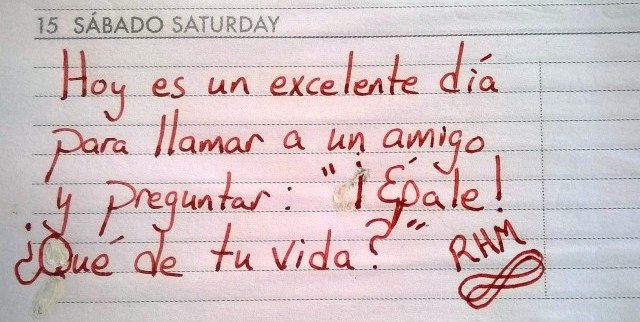 15 SÁBADO SATURDAY
Hoy es un excelente día
para llamar a un amigo
y preguntar: "¡Épale!
¿Qué de tu vida?"
RHM